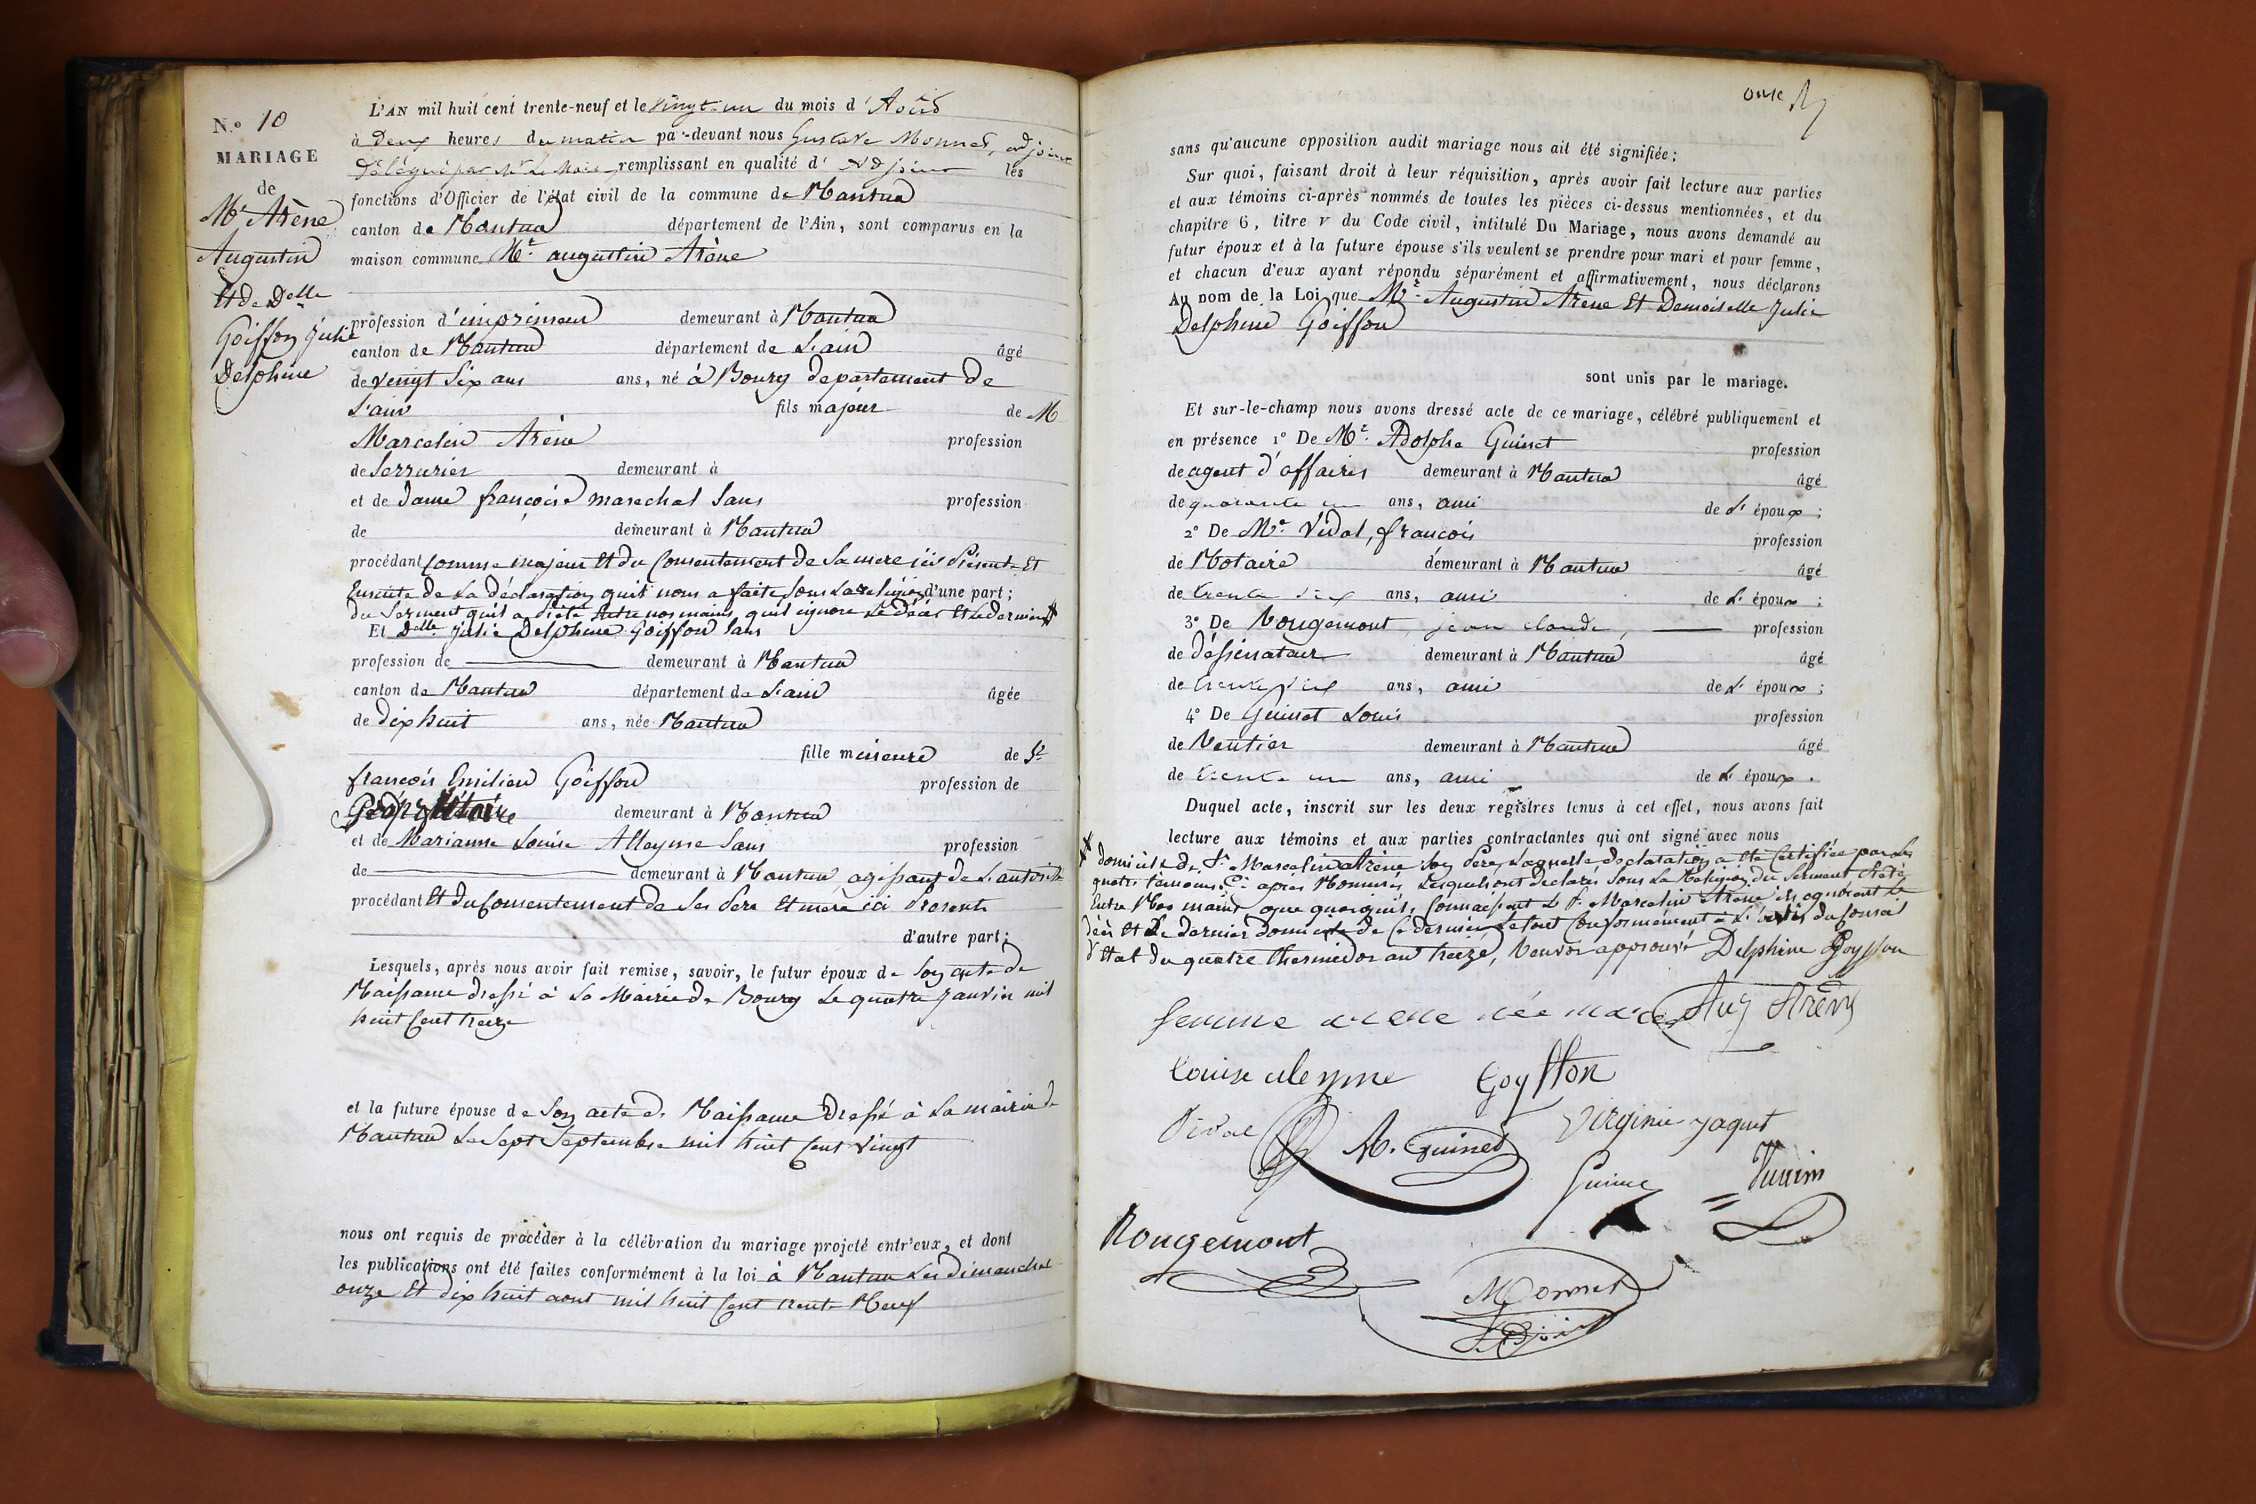 N.º 10
MARIAGE
de
Mr Arène
Augustin
Et de Delle
Goiffon Julie
Delphine
L'AN mil huit cent trente-neuf et le vingt-un du mois d'Août
à deux heures du matin par-devant nous Gustave Monnet, adjoint
Délégué par Mr Le Maire remplissant en qualité d'Adjoint les
fonctions d'Officier de l'état civil de la commune de Nantua
canton de Nantua département de l'Ain, sont comparus en la
maison commune Mr. augustin Arène
profession d'imprimeur demeurant à Nantua
canton de Nantua département de L'ain âgé
de vingt Six ans ans, né à Bourg departement De
L'ain fils majeur de M
Marcelin Arène profession
de Serrurier demeurant à
et de dame françoise marechal Sans profession
de demeurant à Nantua
procédant Comme majeur Et du Consentement de Sa mere ici Présente Et
Ensuite de La déclaration qu'il nous a faite Sous La religion d'une part;
du Serment qu'il a prêté Entre nos mains qu'il ignore Le décès Et Le dernier #
Et Delle Julie Delphine Goiffon Sans
profession de demeurant à Nantua
canton de Nantua département de L'ain âgée
de dix huit ans, née Nantua
fille mineure de Sr
françois Emilien Goiffon profession de
Propriétaire demeurant à Nantua
et de Marianne Louise Alleyme Sans profession
de demeurant à Nantua agissant de L'autorité
procédant Et du Consentement de Ses Pere Et mere ici Présents
d'autre part;
Lesquels, après nous avoir fait remise, savoir, le futur époux de Son acte de
Naissance dressé à La Mairie de Bourg Le quatre Janvier mil
huit Cent treize
et la future épouse de Son acte de Naissance Dressé à La mairie de
Nantua Le Sept Septembre mil huit Cent vingt
nous ont requis de procéder à la célébration du mariage projeté entr'eux, et dont
les publications ont été faites conformément à la loi à Nantua Les dimanches
onze Et dix huit aout mil huit Cent trente Neuf
onze
sans qu'aucune opposition audit mariage nous ait été signifiée;
Sur quoi, faisant droit à leur réquisition, après avoir fait lecture aux parties
et aux témoins ci-après nommés de toutes les pièces ci-dessus mentionnées, et du
chapitre 6, titre V du Code civil, intitulé Du Mariage, nous avons demandé au
futur époux et à la future épouse s'ils veulent se prendre pour mari et pour femme,
et chacun d'eux ayant répondu séparément et affirmativement, nous déclarons
Au nom de la Loi que Mr. Augustin Arène Et Demoiselle Julie
Delphine Goiffon
sont unis par le mariage.
Et sur-le-champ nous avons dressé acte de ce mariage, célébré publiquement et
en présence 1º De Mr. Adolphe Guinet profession
de agent d'affaires demeurant à Nantua âgé
de quarante un ans, ami de L' époux;
2º De Mr. Vidal, françois profession
de Notaire demeurant à Nantua âgé
de trente six ans, ami de L' époux;
3º De Rougemont, jean claude, profession
de dessinateur demeurant à Nantua âgé
de trente six ans, ami de L' époux;
4º De Guinet Louis profession
de Rentier demeurant à Nantua âgé
de trente un ans, ami de L' époux.
Duquel acte, inscrit sur les deux registres tenus à cet effet, nous avons fait
lecture aux témoins et aux parties contractantes qui ont signé avec nous
# domicile de Sr. Marcelin Arène Son Pére, Laquelle declaration a été Certifiée par Les
quatre témoins Ci après Nommés, Lesquels ont déclaré Sous La Religion du Serment Prêté
Entre Nos mains que quoiqu'ils Connaissent Le Sr Marcelin Arène ils ignorent Le
décès Et Le dernier domicile de Ce dernier Le tout Conformément à L'avis du Conseil
d'Etat du quatre thermidor an treize, Renvoi approuvé Delphine Goyffon
femme arene née marec Aug Arène
Louise aleyme Goyffon
Vidal A. Guinet Virginie Jaquet
Guinet
Rougemont
Monnet
Adjoint